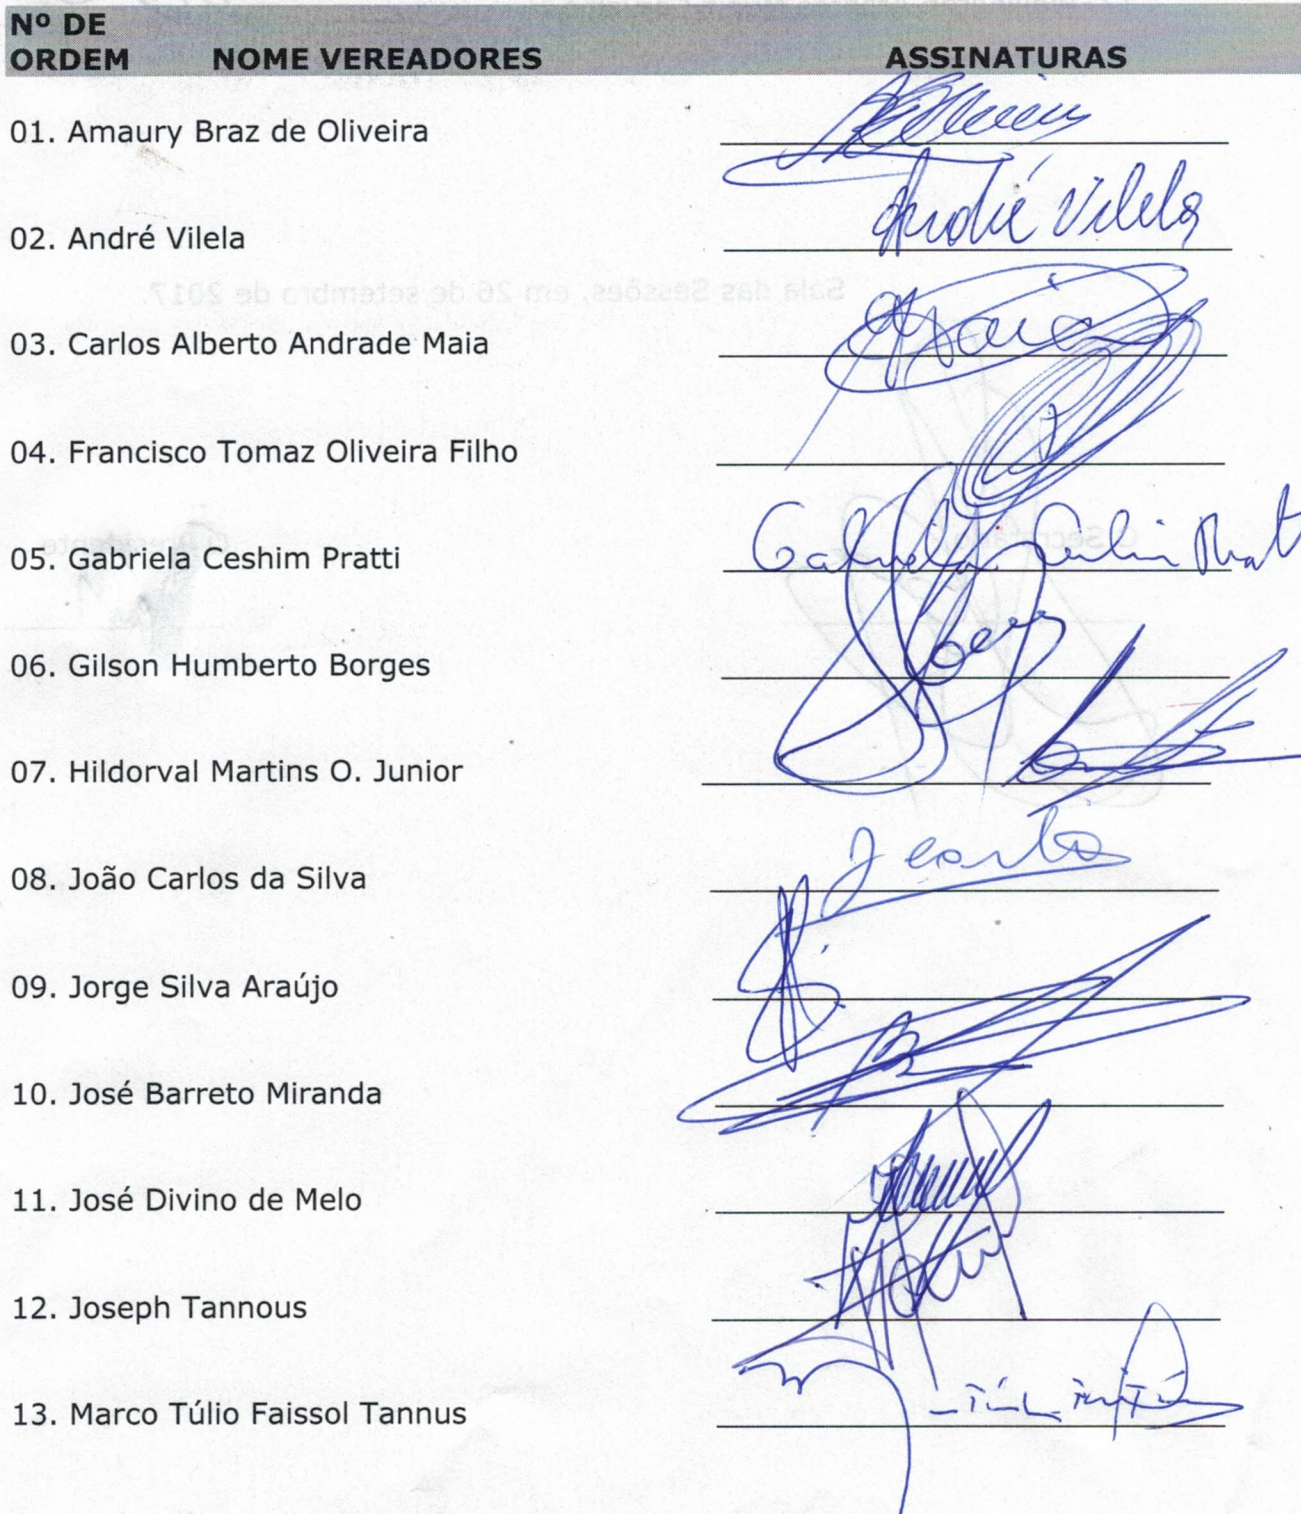 Nº DE
ORDEM NOME VEREADORES ASSINATURAS
01. Amaury Braz de Oliveira
02. André Vilela André Vilela
Sala das Sessões, em 26 de setembro de 2017.
03. Carlos Alberto Andrade Maia Maia
04. Francisco Tomaz Oliveira Filho
O Secretário O Presidente
05. Gabriela Ceshim Pratti Gabriela
06. Gilson Humberto Borges
07. Hildorval Martins O. Junior
08. João Carlos da Silva J Carlos
09. Jorge Silva Araújo
10. José Barreto Miranda
11. José Divino de Melo
12. Joseph Tannous
13. Marco Túlio Faissol Tannus